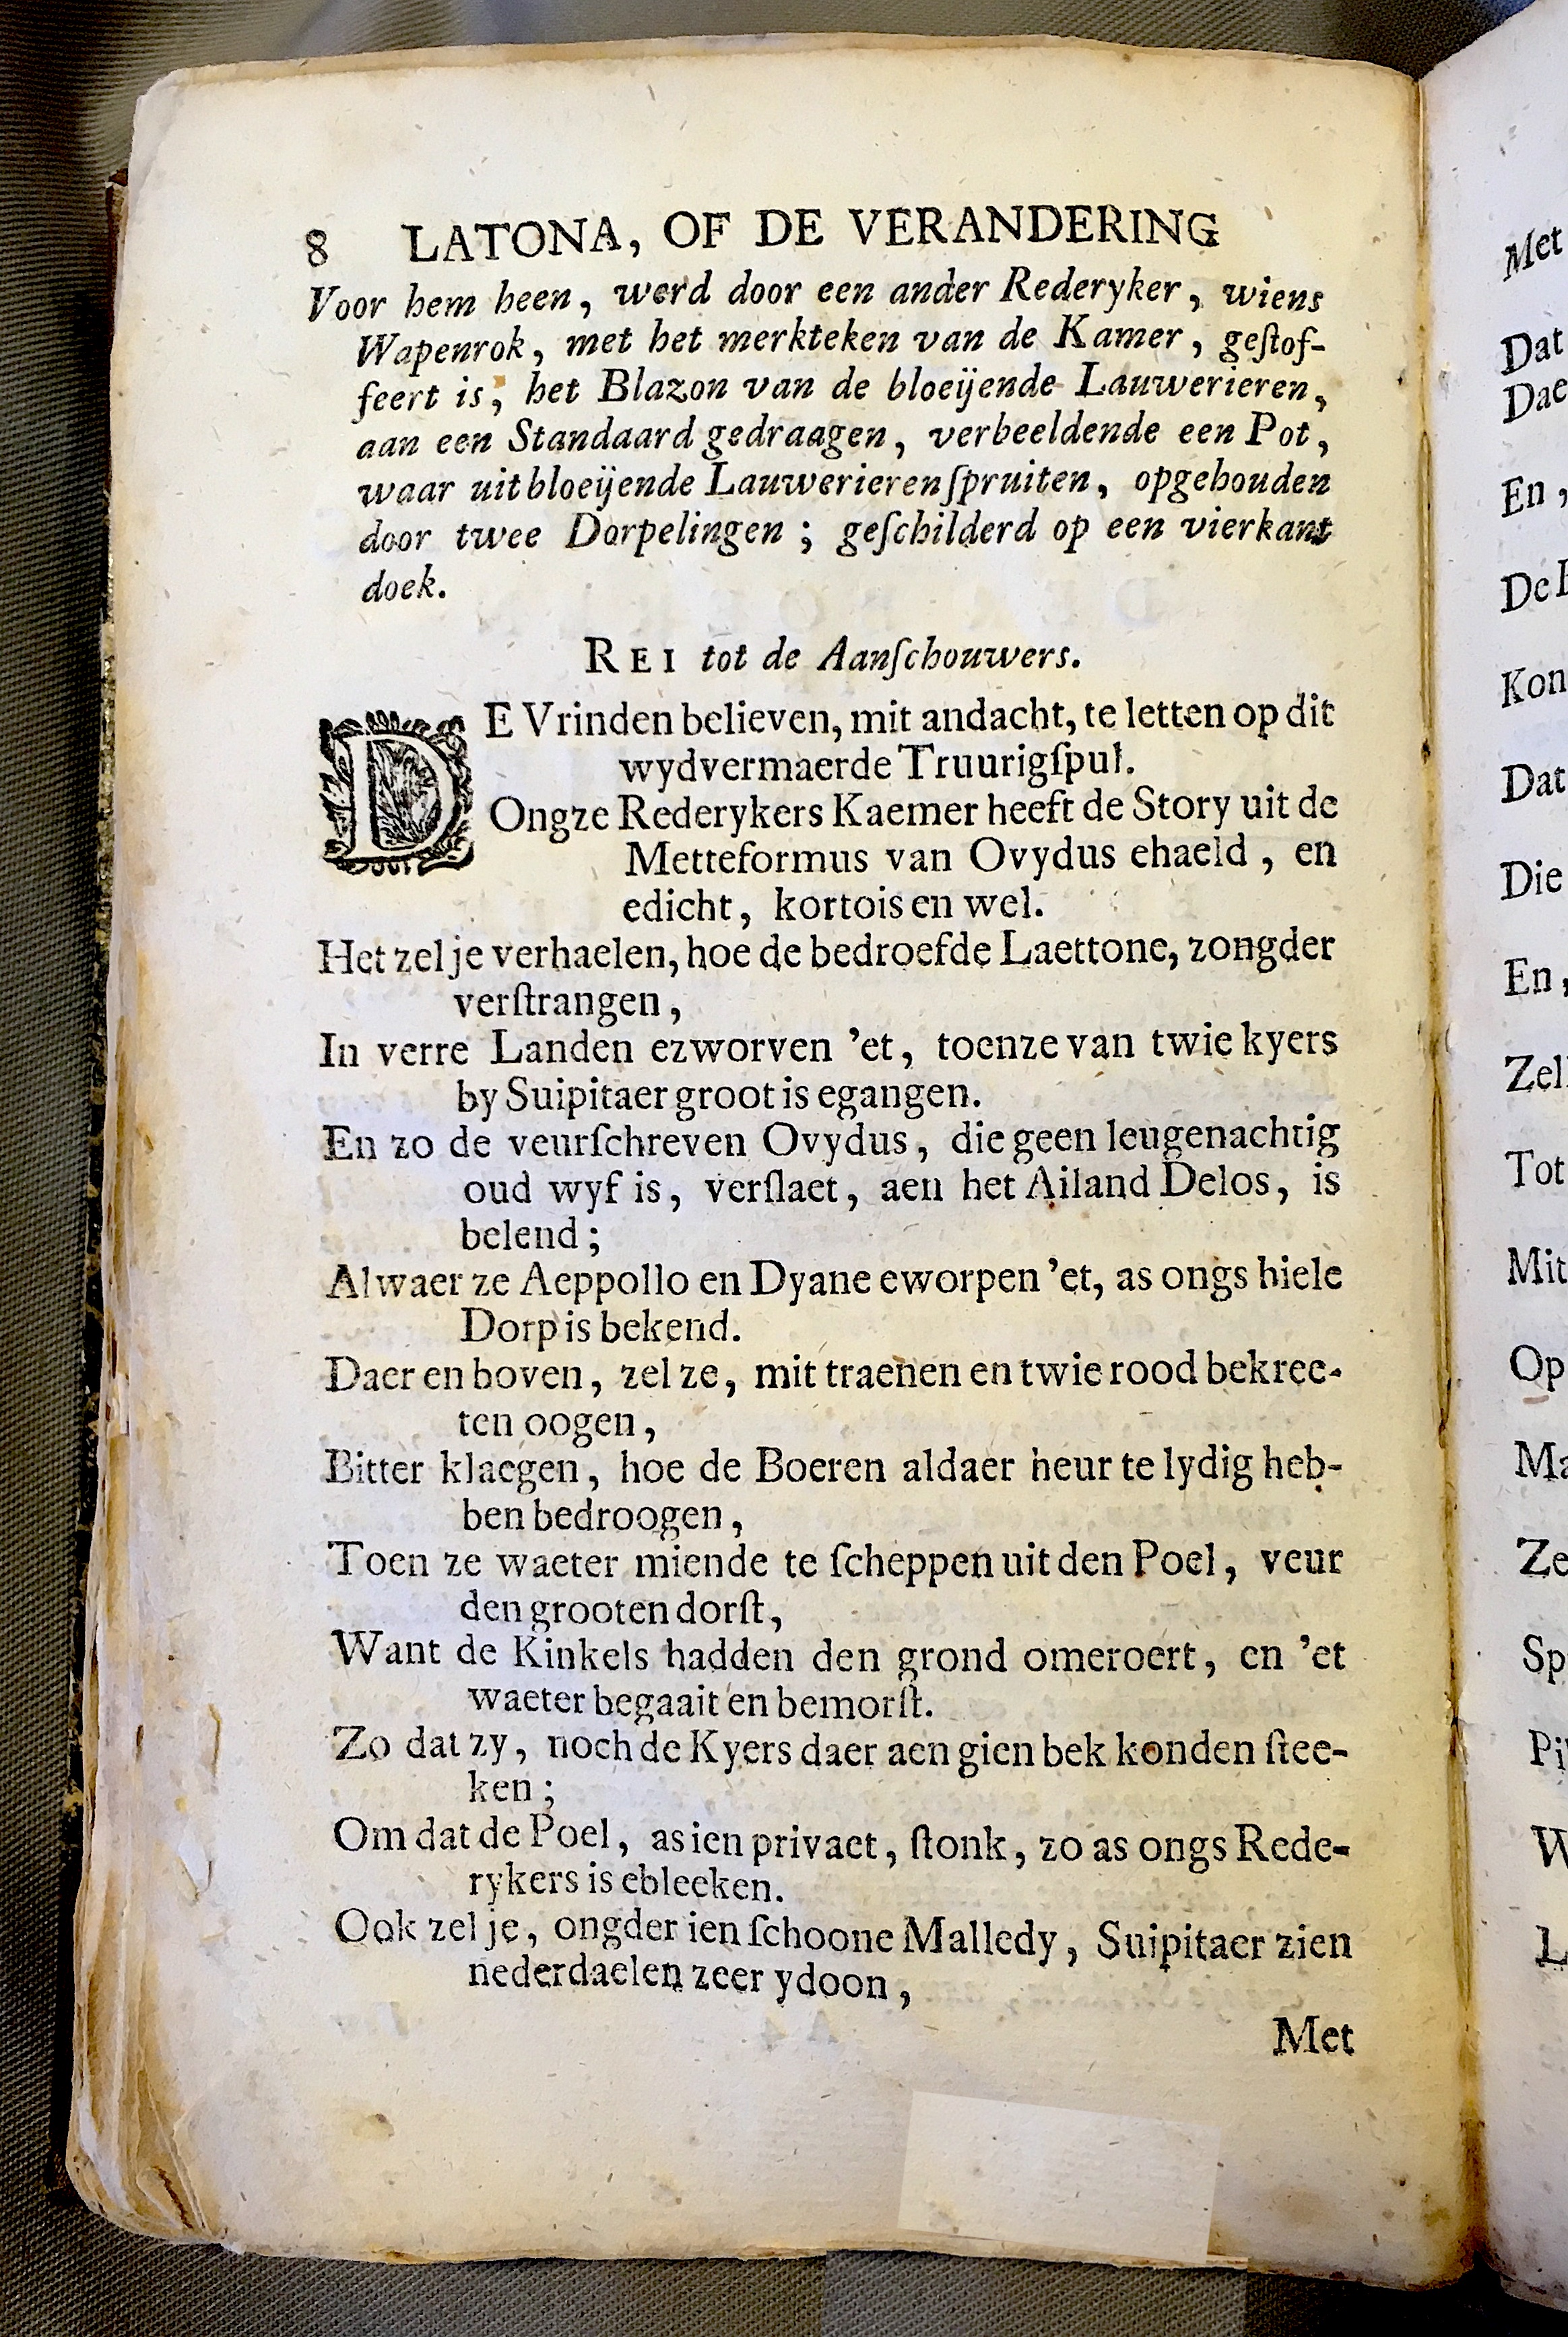 8 LATONA, OF DE VERANDERING
Voor hem heen, werd door een ander Rederyker, wiens
Wapenrok, met het merkteken van de Kamer, geſtof-
feert is, het Blazon van de bloeijende Lauwerieren,
aan een Standaard gedraagen, verbeeldende een Pot,
waar uit bloeijende Lauwerieren ſpruiten, opgehouden
door twee Dorpelingen; geſchilderd op een vierkant
doek.
REI tot de Aanſchouwers.
DE Vrinden believen, mit andacht, te letten op dit
wydvermaerde Truurigſpul.
Ongze Rederykers Kaemer heeft de Story uit de
Metteformus van Ovydus ehaeld, en
edicht, kortois en wel.
Het zel je verhaelen, hoe de bedroefde Laettone, zongder
verſtrangen,
In verre Landen ezworven 'et, toenze van twie kyers
by Suipitaer groot is egangen.
En zo de veurſchreven Ovydus, die geen leugenachtig
oud wyf is, verſlaet, aen het Ailand Delos, is
belend;
Alwaer ze Aeppollo en Dyane eworpen 'et, as ongs hiele
Dorp is bekend.
Daer en boven, zel ze, mit traenen en twie rood bekree-
ten oogen,
Bitter klaegen, hoe de Boeren aldaer heur te lydig heb-
ben bedroogen,
Toen ze waeter miende te ſcheppen uit den Poel, veur
den grooten dorſt,
Want de Kinkels hadden den grond omeroert, en 'et
waeter begaait en bemorſt.
Zo dat zy, noch de Kyers daer aen gien bek konden ſtee-
ken;
Om dat de Poel, as ien privaet, ſtonk, zo as ongs Rede-
rykers is ebleeken.
Ook zel je, ongder ien ſchoone Malledy, Suipitaer zien
nederdaelen zeer ydoon,
Met
Met
Dat
Dae
En,
De
Kon
Dat
Die
En,
Zel
Tot
Mit
Op
Ma
Ze
Sp